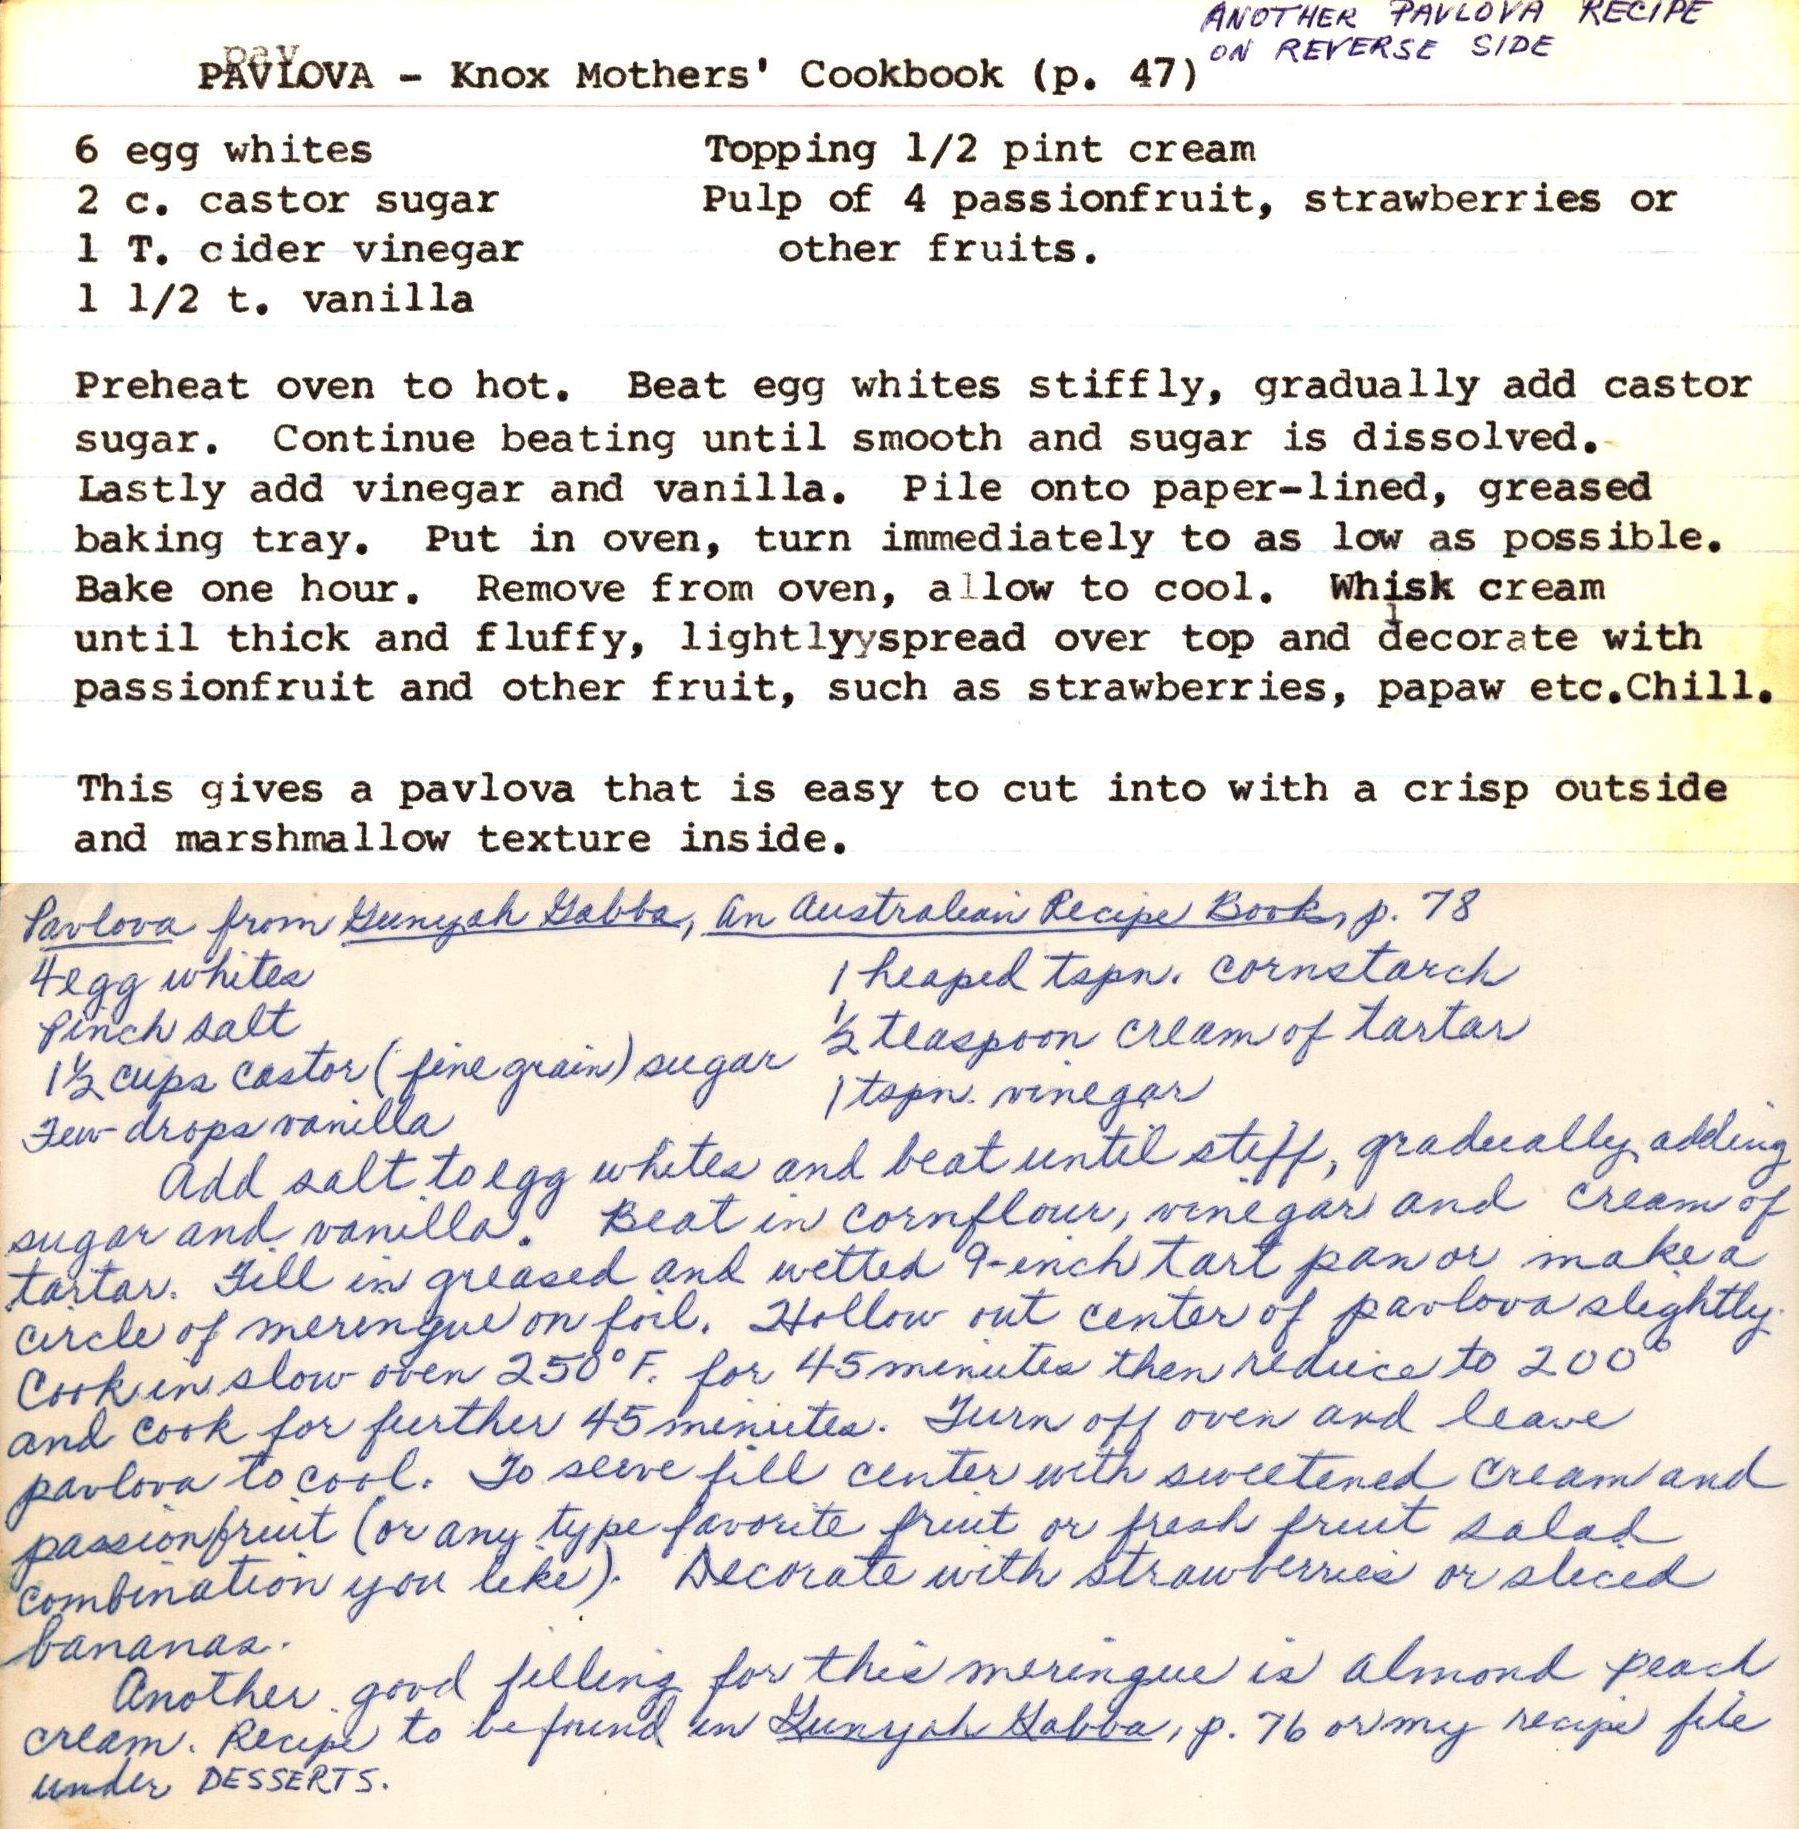 ANOTHER PAVLOVA RECIPE
ON REVERSE SIDE
pav
PAVLOVA - Knox Mothers' Cookbook (p. 47)
6 egg whites Topping 1/2 pint cream
2 c. castor sugar Pulp of 4 passionfruit, strawberries or
1 T. cider vinegar other fruits.
1 1/2 t. vanilla
Preheat oven to hot. Beat egg whites stiffly, gradually add castor
sugar. Continue beating until smooth and sugar is dissolved.
Lastly add vinegar and vanilla. Pile onto paper-lined, greased
baking tray. Put in oven, turn immediately to as low as possible.
Bake one hour. Remove from oven, allow to cool. Whisk cream
until thick and fluffy, lightlyyspread over top and decorate with
passionfruit and other fruit, such as strawberries, papaw etc.Chill.
This gives a pavlova that is easy to cut into with a crisp outside
and marshmallow texture inside.
Pavlova from Gunyah Gabba, An Australian Recipe Book, p. 78
4 egg whites 1 heaped tspn. cornstarch
Pinch salt ½ teaspoon cream of tartar
1½ cups castor (fine grain) sugar 1 tspn. vinegar
Few drops vanilla
Add salt to egg whites and beat until stiff, gradually adding
sugar and vanilla. Beat in cornflour, vinegar and cream of
tartar. Fill in greased and wetted 9-inch tart pan or make a
circle of meringue on foil. Hollow out center of pavlova slightly.
Cook in slow oven 250°F. for 45 minutes then reduce to 200°
and cook for further 45 minutes. Turn off oven and leave
pavlova to cool. To serve fill center with sweetened cream and
passionfruit (or any type favorite fruit or fresh fruit salad
combination you like). Decorate with strawberries or sliced
bananas.
Another good filling for this meringue is almond peach
cream. Recipe to be found in Gunyah Gabba, p. 76 or my recipe file
under DESSERTS.